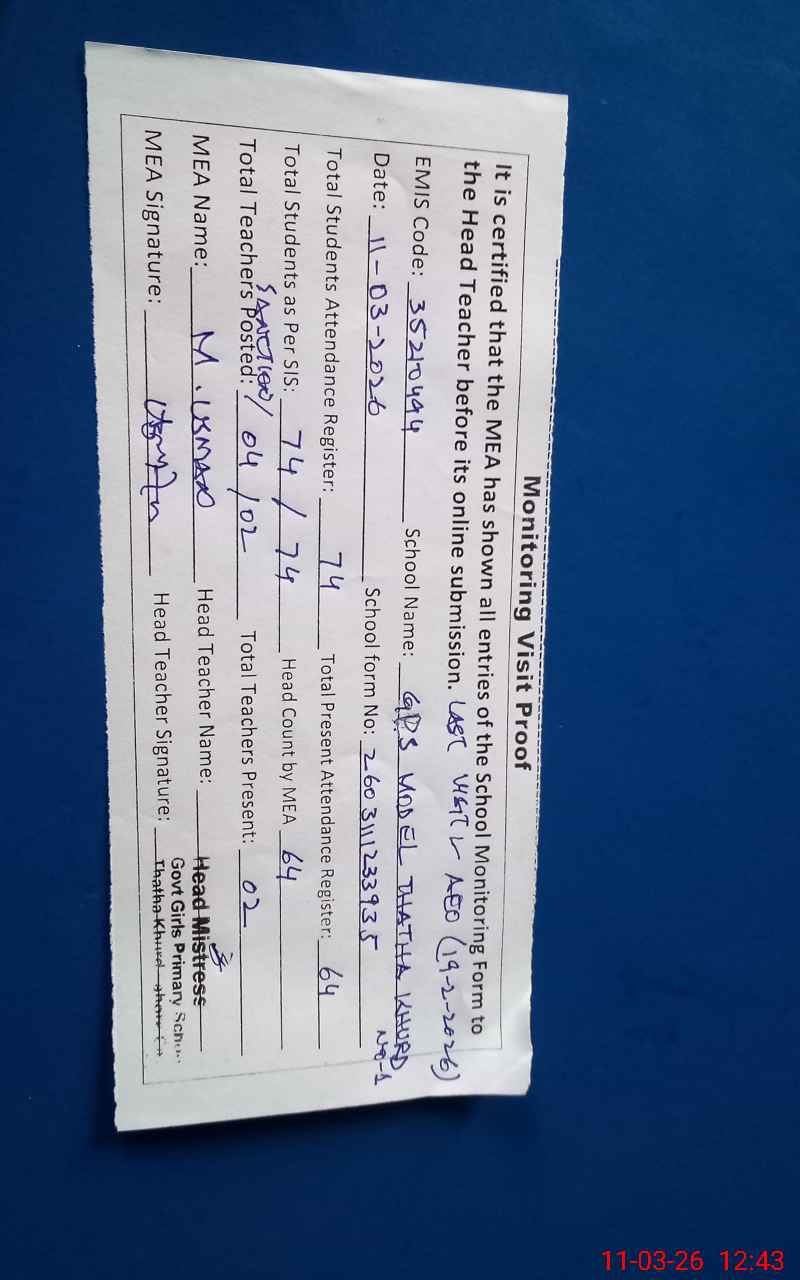 Monitoring Visit Proof
It is certified that the MEA has shown all entries of the School Monitoring Form to
the Head Teacher before its online submission. LAST VISIT AEO (19-2-2026)
EMIS Code: 35210494 School Name: GPS MODEL THATHA KHURD NO-1
Date: 11-03-2026 School form No: 260311233935
Total Students Attendance Register: 74 Total Present Attendance Register: 64
Total Students as Per SIS: 74 / 74 Head Count by MEA 64
Total Teachers Posted: 04 / 02 Total Teachers Present: 02
MEA Name: M. USMAN Head Teacher Name: Head Mistress
Govt Girls Primary
MEA Signature: Head Teacher Signature: Thatha Khurd
11-03-26 12:43